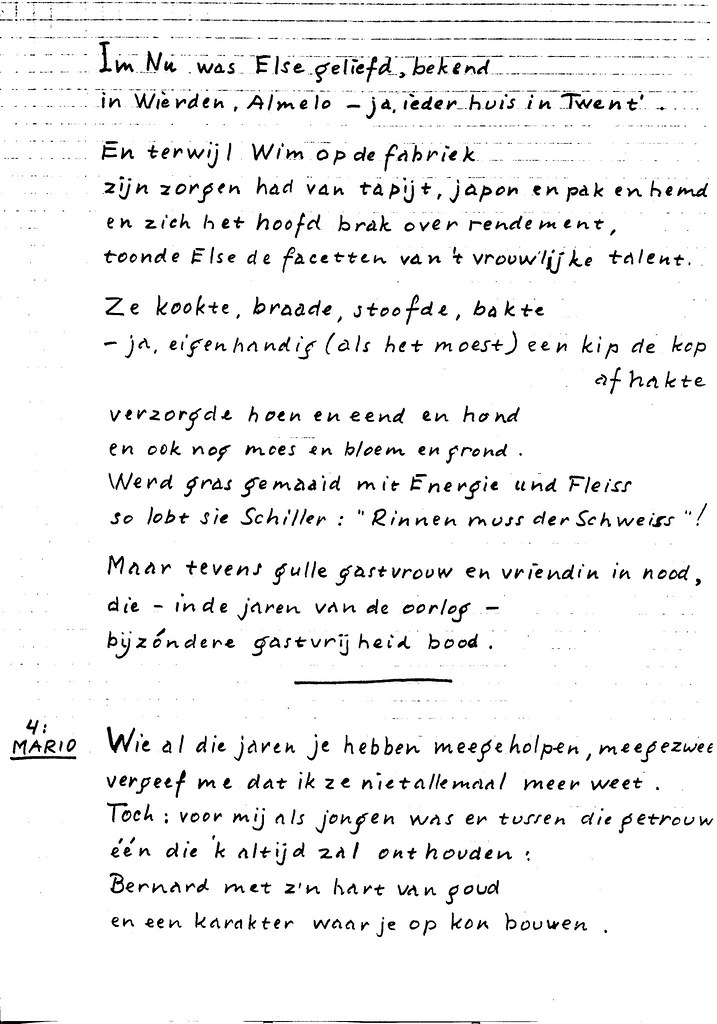 Im Nu was Else geliefd, bekend
in Wierden, Almelo – ja, ieder huis in Twent'.
En terwijl Wim op de fabriek
zijn zorgen had van tapijt, japon en pak en hemd
en zich het hoofd brak over rendement,
toonde Else de facetten van 't vrouwlijke talent.
Ze kookte, braade, stoofde, bakte
– ja, eigenhandig (als het moest) een kip de kop
afhakte
verzorgde hoen en eend en hond
en ook nog moes en bloem en grond.
Werd gras gemaaid mit Energie und Fleiss
so lobt sie Schiller: "Rinnen muss der Schweiss"!
Maar tevens gulle gastvrouw en vriendin in nood,
die – in de jaren van de oorlog –
bijzóndere gastvrijheid bood.
4:
MARIO
Wie al die jaren je hebben meegeholpen, meegezwee
vergeef me dat ik ze niet allemaal meer weet.
Toch: voor mij als jongen was er tussen die getrouw
één die 'k altijd zal onthouden:
Bernard met z'n hart van goud
en een karakter waar je op kon bouwen.